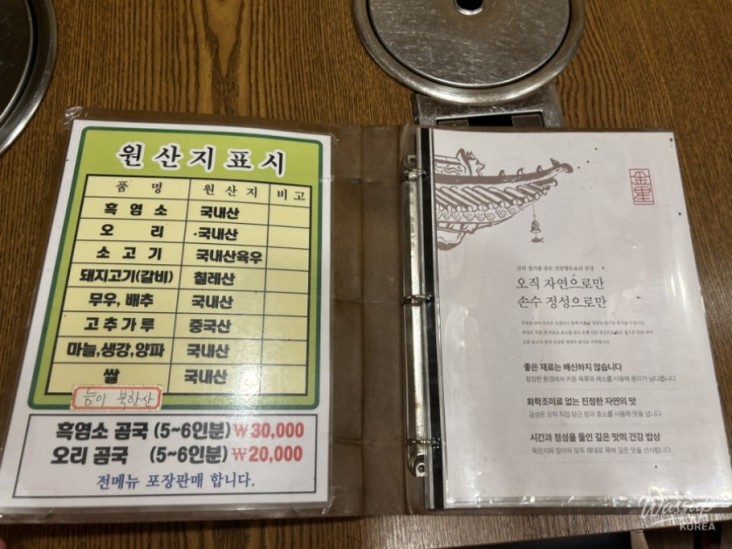 원산지표시
품 명 원산지 비고
흑염소 국내산
오 리 국내산
소고기 국내산육우
돼지고기(갈비) 칠레산
무우, 배추 국내산
고추가루 중국산
마늘,생강,양파 국내산
쌀 국내산
능이 북한산
흑염소 곰국 (5~6인분) ₩30,000
오리 곰국 (5~6인분) ₩20,000
전메뉴 포장판매 합니다.
오직 자연으로만
손수 정성으로만
좋은 재료는 배신하지 않습니다
화학조미료 없는 진정한 자연의 맛
시간과 정성을 들인 깊은 맛의 건강 밥상
KOREA